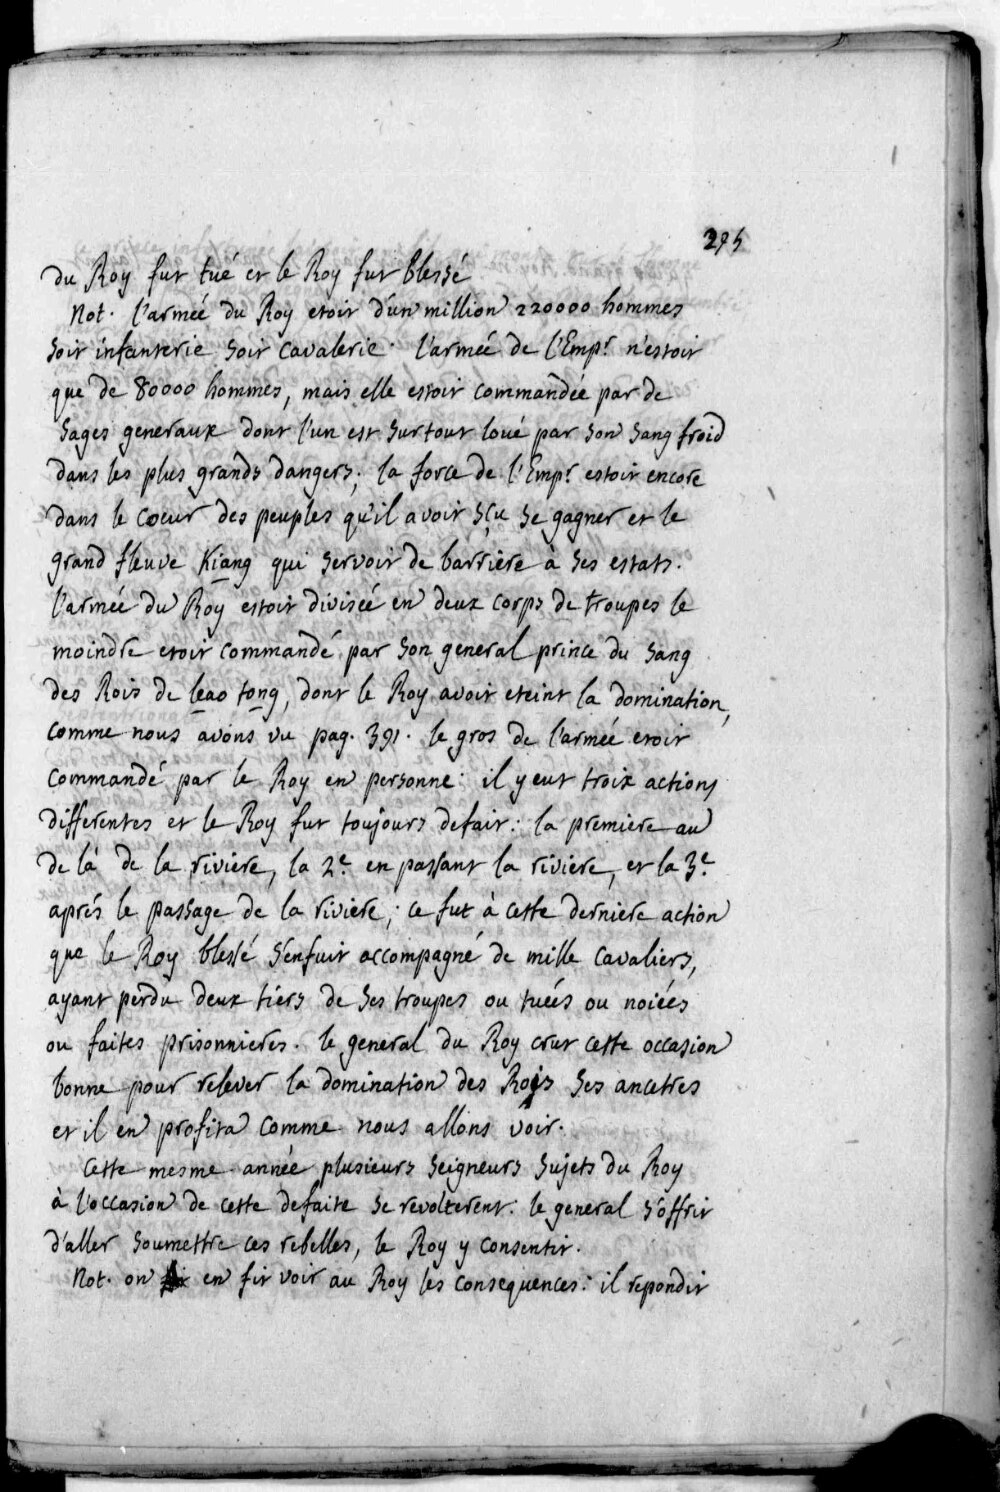 295
du Roy fut tué et le Roy fut blessé
Not. l'armée du Roy etoit d'un million 220000 hommes
soit infanterie soit cavalerie. l'armée de l'Empr n'estoit
que de 80000 hommes, mais elle estoit commandée par de
sages generaux dont l'un est surtout loué par son sang froid
dans les plus grands dangers; la force de l'Empr estoit encore
dans le coeur des peuples qu'il avoit sçu se gagner et le
grand fleuve Kiang qui servoit de barriere à ses estats.
l'armée du Roy estoit divisée en deux corps de troupes le
moindre etoit commandé par son general prince du sang
des Rois de leao tong, dont le Roy avoit eteint la domination,
comme nous avons vu pag. 391. le gros de l'armée etoit
commandé par le Roy en personne: il y eut troix actions
differentes et le Roy fut toujours defait: la premiere au
de là de la riviere, la 2e en passant la riviere, et la 3e
aprés le passage de la riviere; ce fut à cette derniere action
que le Roy blessé s'enfuit accompagné de mille cavaliers,
ayant perdu deux tiers de ses troupes ou tuées ou noiées
ou faites prisonnieres. le general du Roy crut cette occasion
bonne pour relever la domination des Rois ses ancetres
et il en profita comme nous allons voir.
Cette mesme année plusieurs seigneurs sujets du Roy
à l'occasion de cette defaite se revolterent: le general s'offrit
d'aller soumettre ces rebelles, le Roy y consentit.
Not. on en fit voir au Roy les consequences: il repondit